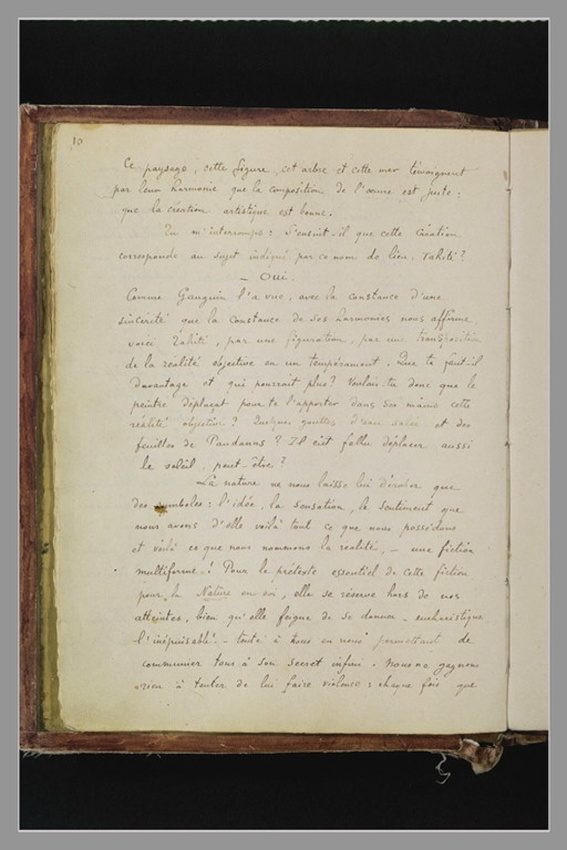 10
Ce paysage, cette figure, cet arbre et cette mer témoignent
par leur harmonie que la composition de l'œuvre est juste :
que la création artistique est bonne.
Tu m'interromps : S'ensuit-il que cette création
corresponde au sujet indiqué par ce nom de lieu, Tahiti ?
— Oui.
Comme Gauguin l'a vue, avec la constance d'une
sincérité que la constance de ses harmonies nous affirme,
voici Tahiti, par une figuration, par une transposition
de la réalité objective en un tempérament. Que te faut-il
davantage et qui pourrait plus ? Voulais-tu donc que le
peintre déplaçat pour te l'apporter dans ses mains cette
réalité objective ? Quelques gouttes d'eau salée et des
feuilles de Pandanus ? Il eût fallu déplacer aussi
le soleil, peut-être ?
La nature ne nous laisse lui dérober que
des symboles : l'idée, la sensation, le sentiment que
nous avons d'elle voilà tout ce que nous possédons
et voilà ce que nous nommons la réalité, — une fiction
multiforme. ! Pour le prétexte essentiel de cette fiction
pour la Nature en soi, elle se réserve hors de nos
atteintes, bien qu'elle feigne de se donner — eucharistique
l'inépuisable ! — toute à tous en nous permettant de
communier tous à son secret infini. Nous ne gagnons
rien à tenter de lui faire violence : chaque fois que